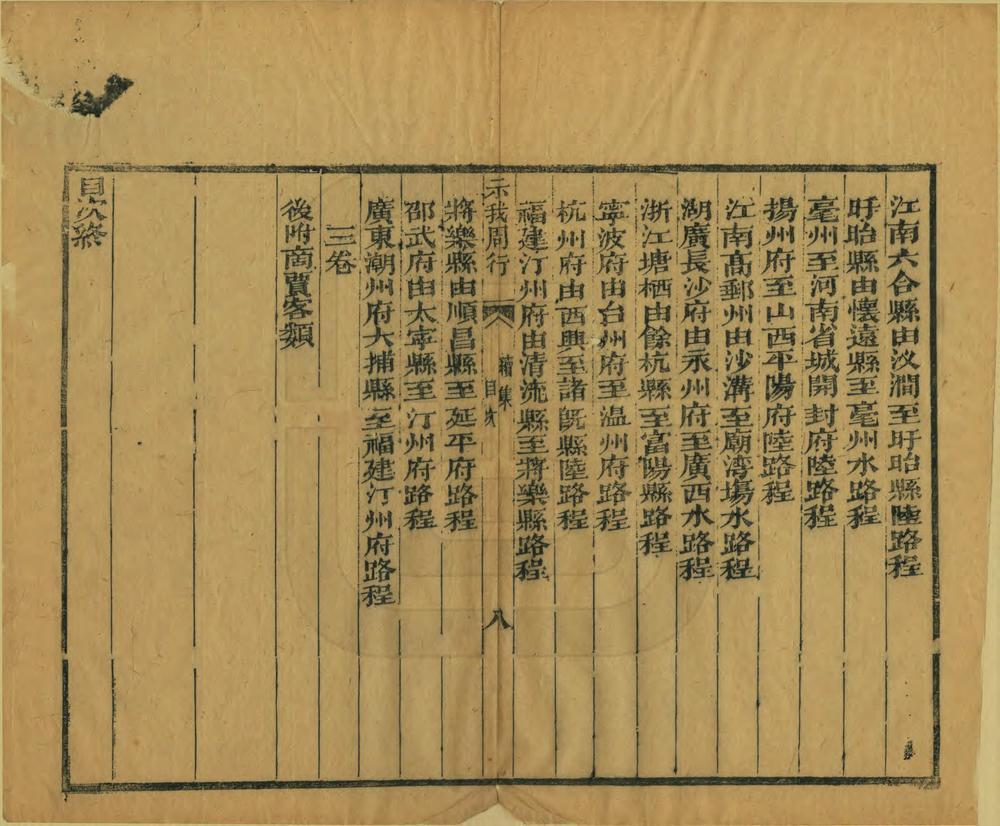 江南六合縣由汊澗至盱眙縣陸路程
盱眙縣由懷遠縣至亳州水路程
亳州至河南省城開封府陸路程
揚州府至山西平陽府陸路程
江南高郵州由沙溝至廟湾塲水路程
湖廣長沙府由永州府至廣西水路程
浙江塘栖由餘杭縣至富陽縣路程
寧波府由台州府至温州府路程
杭州府由西興至諸旣縣陸路程
福建汀州府由清流縣至將樂縣路程
示我周行
續集
目次
八
將樂縣由順昌縣至延平府路程
邵武府由太寧縣至汀州府路程
廣東潮州府大捕縣至福建汀州府路程
三卷
後附商賈客類
目次終